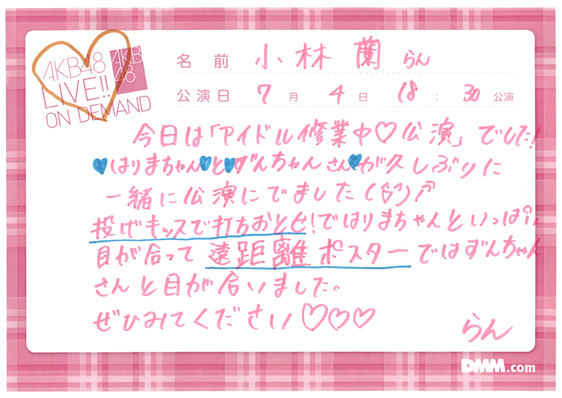 AKB48
LIVE!!
ON DEMAND
AKB
48
名前 小林蘭 らん
公演日 7月4日 18:30公演
今日は「アイドル修業中♡公演」でした!
💙はりまちゃん💙とずんちゃんさん💙が久しぶりに
一緒に公演にでました(^^)♬
投げキッスで打ちおとせ!ではりまちゃんといっぱい
目が合って遠距離ポスターではずんちゃん
さんと目が合いました。
ぜひみてください♡♡♡
らん
DMM.com